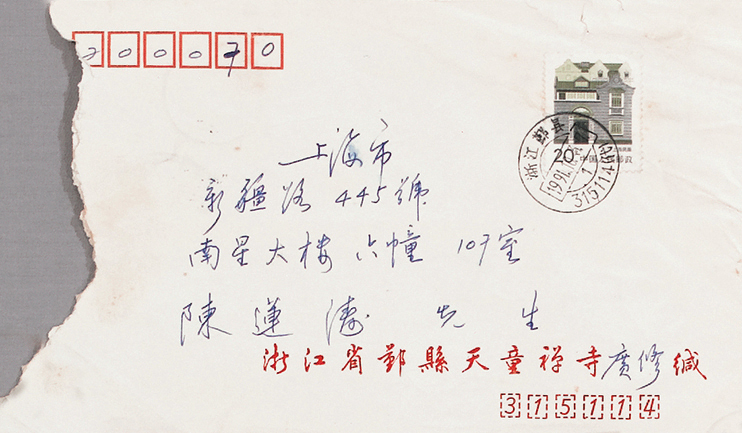 200070
上海市
新疆路445號
南星大楼六幢107室
陳蓮濤 先生
浙江省鄞縣天童禅寺廣修缄
315114
20
中国人民邮政
浙江 鄞县
315114